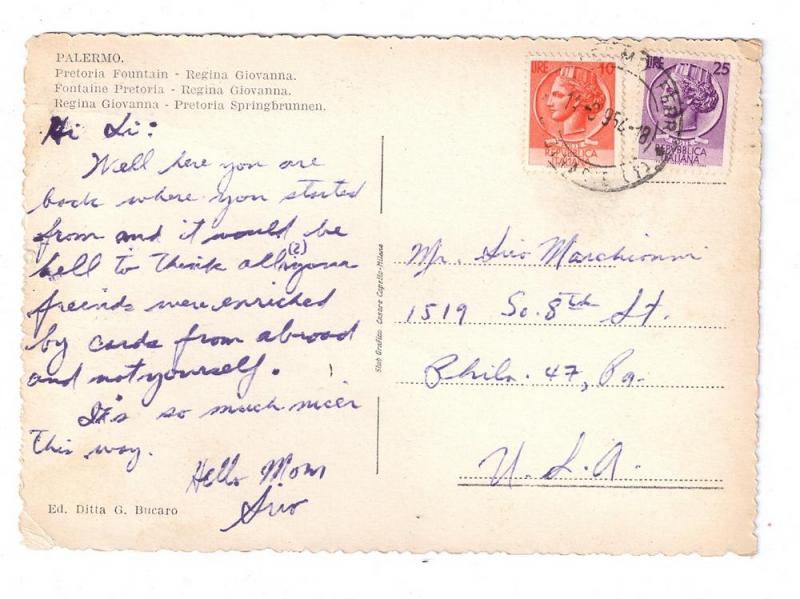 PALERMO.
Pretoria Fountain - Regina Giovanna.
Fontaine Pretoria - Regina Giovanna.
Regina Giovanna - Pretoria Springbrunnen.
Hi Si:
Well here you are
back where you started
from and it would be
hell to think all (2) your
freinds were enriched
by cards from abroad
and not yourself.
It's so much nicer
this way.
Hello Mom
Siro
Ed. Ditta G. Bucaro
Stab Grafico Cesare Capello - Milano
LIRE 10
REPVBBLICA
ITALIANA
LIRE 25
REPVBBLICA
ITALIANA
Mr. Siro Marchionni
1519 So. 8th St.
Phila. 47, Pa.
U.S.A.